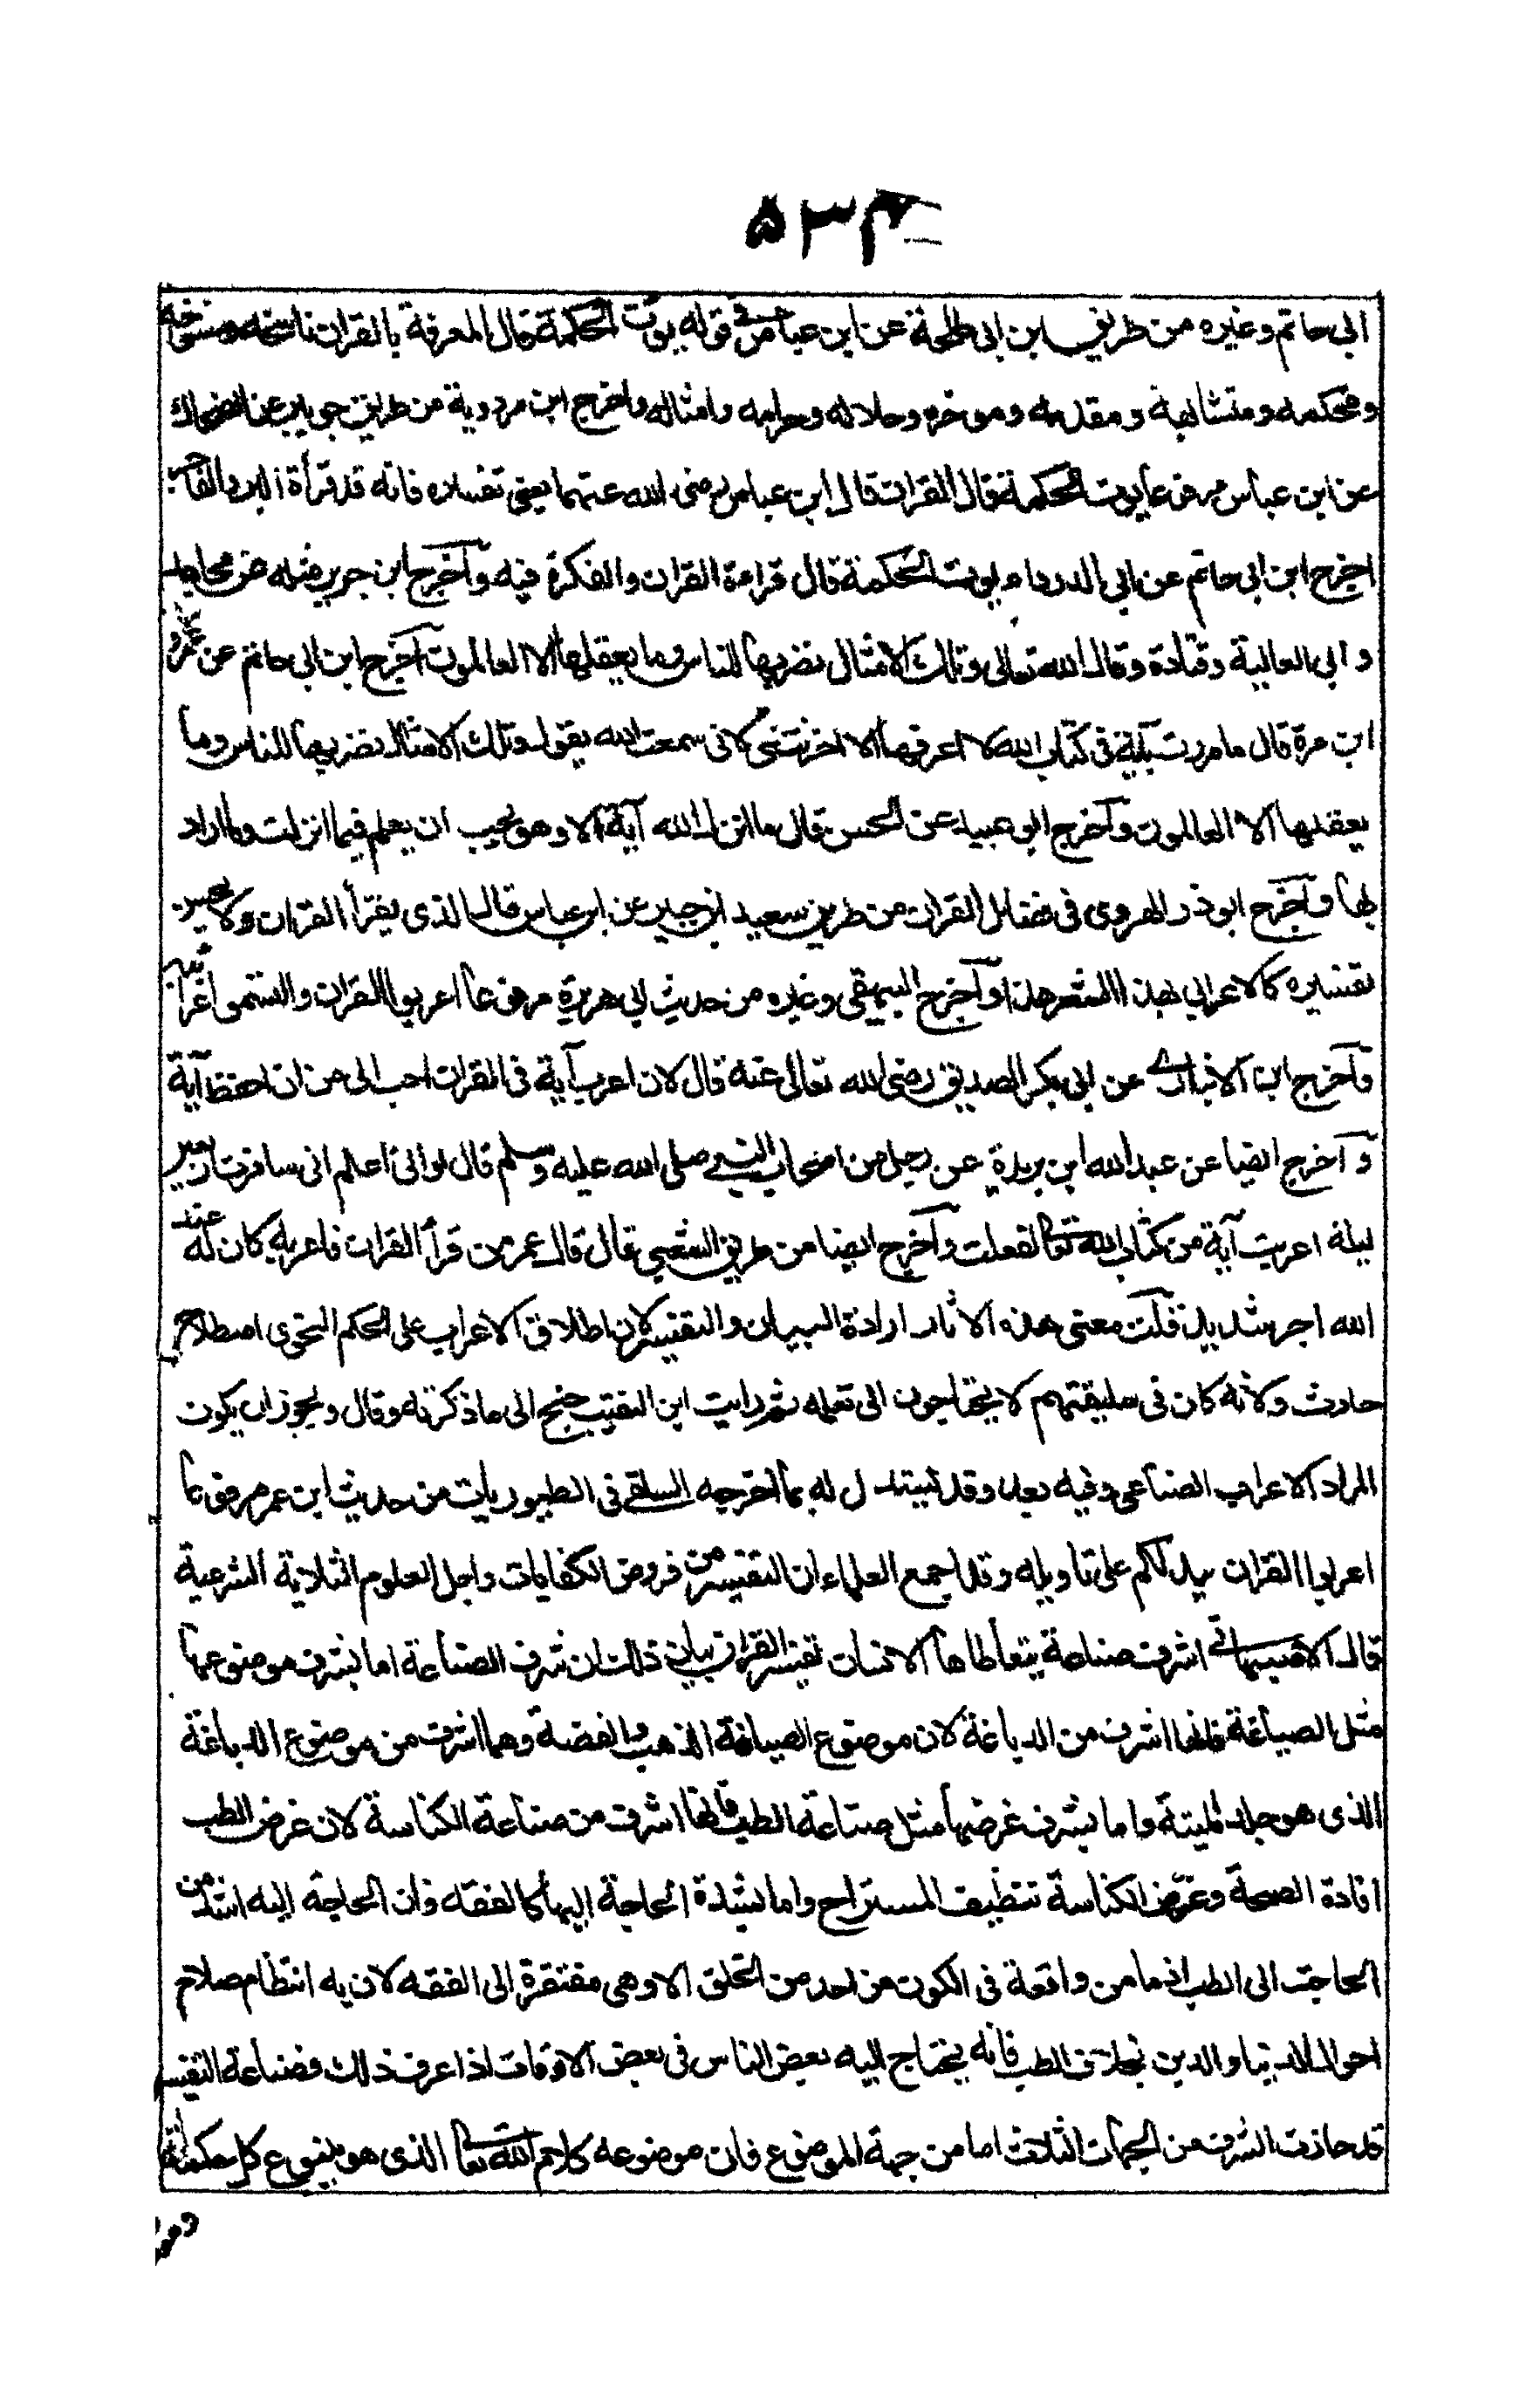 ۵۳۴
ابى حاتم وغيره من طريق ابن ابى طلحة عن ابن عباس فى قوله يوت الحكمة قال المعرفة بالقران ناسخه ومنسوخه
ومحكمه ومتشابهه ومقدمه وموخره وحلاله وحرامه وامثاله واخرج ابن مردوية من طريق جويبر عن الضحاك
عن ابن عباس مرفوعا يوت الحكمة قال القران قال ابن عباس رضى الله عنهما يعنى تفسيره فانه قد قرأه البر والفاجر
اخرج ابن ابى حاتم عن ابى الدرداء يوت الحكمة قال قراءة القران والفكرة فيه وآخرج ابن جرير مثله عن مجاهد
و ابى العالية وقتادة وقال الله تعالى وتلك الامثال نضربها للناس وما يعقلها الا العالمون آخرج ابن ابى حاتم عن عمرو
ابن مرة قال ما مررت باية فى كتاب الله لا اعرفها الا احزنتنى لانى سمعت الله يقول وتلك الامثال نضربها للناس وما
يعقلها الا العالمون وآخرج ابو عبيد عن الحسن قال ما انزل الله آية الا وهو يحب ان يعلم فيما انزلت وما اراد
بها وآخرج ابو ذر الهروى فى فضائل القران من طريق سعيد ابن جبير عن ابن عباس قال الذى يقرأ القران ولا يحسن
تفسيره كالاعرابى يهذ الشعر هذا وآخرج البيهقى وغيره من حديث ابى هريرة مرفوعا اعربوا القران والتمسوا غرائبه
وآخرج ابن الانبارى عن ابى بكر الصديق رضى الله تعالى عنه قال لان اعرب آية فى القران احب الى من ان احفظ آية
وآخرج ايضا عن عبد الله ابن بريدة عن رجل من اصحاب النبى صلى الله عليه وسلم قال لو انى اعلم انى سافرت اربعين
ليلة اعربت آية من كتاب الله تعالى لفعلت وآخرج ايضا من طريق الشعبى قال قال عمر من قرأ القران فاعربه كان له عند
الله اجر شهيد قلت معنى هذه الاثار ارادة البيان والتفسير لان اطلاق الاعراب على الحكم النحوى اصطلاح
حادث ولانه كان فى سليقتهم لا يحتاجون الى تعلمه ثم رايت ابن النقيب جنح الى ما ذكرته وقال ويجوز ان يكون
المراد الاعراب الصناعى وفيه بعد وقد يستدل له بما أخرجه السلفى فى الطيوريات من حديث ابن عمر مرفوعا
اعربوا القران يدلكم على تاويله وقد اجمع العلماء ان التفسير من فروض الكفايات واجل العلوم الثلاثة الشرعية
قال الاصبهانى اشرف صناعة يتعاطاها الانسان تفسير القران بيان ذلك ان شرف الصناعة اما بشرف موضوعها
مثل الصياغة فانها اشرف من الدباغة لان موضوع الصياغة الذهب والفضة وهما اشرف من موضوع الدباغة
الذى هو جلد الميتة واما بشرف غرضها مثل صناعة الطب فانها اشرف من صناعة الكناسة لان غرض الطب
افادة الصحة وغرض الكناسة تنظيف المستراح واما لشدة الحاجة اليها كالفقه فان الحاجة اليه اشد من
الحاجة الى الطب اذ ما من واقعة فى الكون من احد من الخلق الا وهى مفتقرة الى الفقه لان به انتظام صلاح
احوال الدنيا والدين بخلاف الطب فانه يحتاج اليه بعض الناس فى بعض الاوقات اذا عرف ذلك فصناعة التفسير
قد حازت الشرف من الجهات الثلاث اما من جهة الموضوع فان موضوعه كلام الله تعالى الذى هو ينبوع كل حكمة